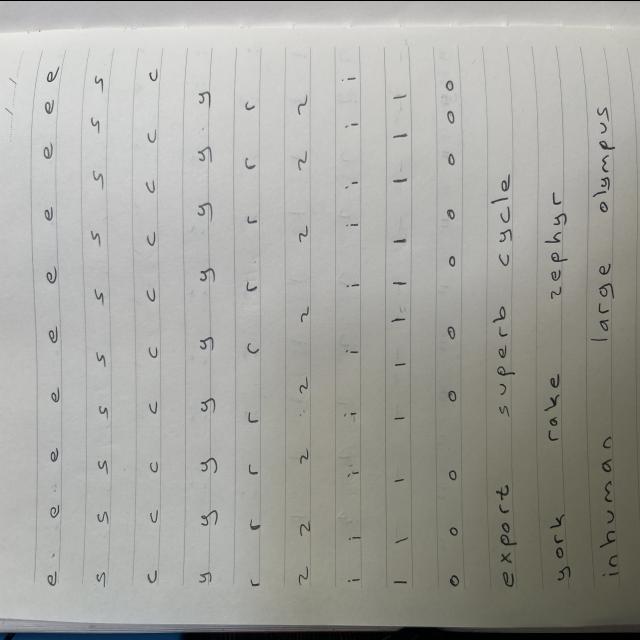 e e e e e e e e e
s s s s s s s s s s
c c c c c c c c c c
y y y y y y y y y
r r r r r r r r r
z z z z z z z z
i i i i i i i i i i
l l l l l l l l l l l
o o o o o o o o o o
export superb cycle
york rake zephyr
inhuman large olympus